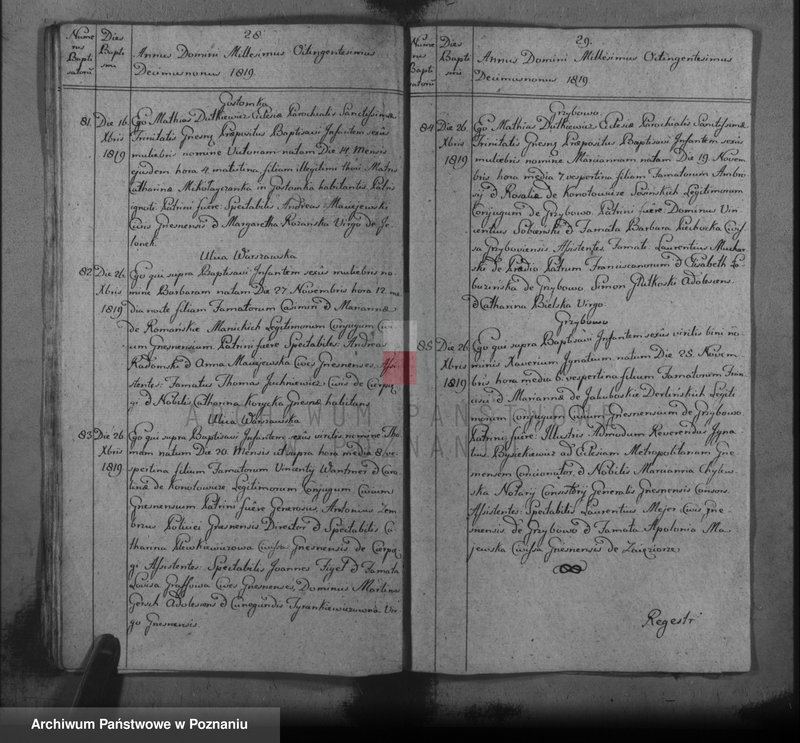 28
Nume
rus
Bapti
satorũ
Dies
Bapti
smi
Annus Domini Millesimus Octingentesimus
Decimusnonus 1819
Gostomka
81. Die 16. Ego Mathias Dutkiewicz Eclesiæ Parochialis Sanctissimæ
Xbris Trinitatis Gnesnę Præpositus Baptisavi Infantem sexus
1819 muliebris nomine natam Die 14. Mensis
ejusdem hora 4. matutina filiam illegitimi thori Matris
Catharina Mikołayczanka in Gostomka habitantis Patris
ignoti Patrini fuere: Spectabilis Andreas Maciejewski
Civis Gnesnensis d Margaretha Rożańska Virgo de Je
lonek.
Ulica Warszawska
82. Die 26. Ego qui supra Baptisavi Infantem sexus muliebris no
Xbris mine Barbaram natam Die 27. Novembris hora 12. me
1819 dia nocte filiam Famatorum Casimiri d Mariannæ
de Romańskie Legitimorum Conjugum Civi
um Gnesnensium Patrini fuere Spectabiles: Andreas
Radomski d Anna Maciejewska Cives Gnesnenses: Assi
stentes: Famatus Thomas Juchniewicz Civis de Cierpię
gi d Nobilis Catharina Korycka Gnesnæ habitans
Ulica Warszawska
83. Die 26. Ego qui supra Baptisavi Infantem sexus virilis nomine Tho
Xbris mam natum Die 20. Mensis ut supra hora media 8. ve
1819. spertina filium Famatorum Vincenty Wantmer d Caro
linæ de Konotowicze Legitimorum Conjugum Civium
Gnesnensium Patrini fuere Generosus Antonius
Policiei Gnesnensis Director d Spectabilis Ca
tharina Civissa Gnesnensis de Cierpię
gi Assistentes: Spectabilis Joannes d Famata
Lovisa Graffowa Cives Gnesnenses, Dominus Martinus
Gersch Adolescens d Cunegundis Tyrankiewiczowna Vir
go Gnesnensis.
29.
Nume
rus
Bapti
satorũ
Dies
Bapti
smi
Annus Domini Millesimus Octingentesimus
Decimusnonus 1819
Grzybowo
84. Die 26. Ego Mathias Dutkiewicz Eclesiæ Parochialis Sanctissimæ
Xbris Trinitatis Gnesnę Præpositus Baptisavi Infantem sexus
1819 muliebris nomine Mariannam natam Die 19. Novem
bris hora media 7. vespertina filiam Famatorum Ambro
sij d Rosaliæ de Konotowicze Sosinskich Legitimorum
Conjugum de Grzybowo Patrini fuere: Dominus Vin
centius d Famata Barbara Piechocka Civis
sa Grzybowiensis Assistentes Famat: Laurentius
ski de Prædio Patrum Franciscanorum d Elisabeth
de Grzybowo Simon Adolescens
d Catharina Bielska Virgo.
Grzybowo
85. Die 26. Ego qui supra Baptisavi Infantem sexus virilis bini no
Xbris minis Xaverium Ignatum natum Die 25. Novem
1819 bris hora media 6. vespertina filium Famatorum Fran
cisci d Mariannæ de Jakubowskie Derlińskich Legiti
morum Conjugum Civium Gnesnensium de Grzybowo
Patrini fuere: Illustris Admodum Reverendus Igna
tius Bysiekiewicz ad Eclesiam Metropolitanam Gne
snensem Concionator d Nobilis Marianna Chylew
ska Notary Consistorij Generalis Gnesnensis Consors.
Assistentes: Spectabilis Laurentius Mejer Civis Gne
snensis de Grzybowo d Famata Apolonia Ma
jewska Civissa Gnesnensis de Zaiezierze
Regestr
ARCHIWUM PAŃSTWOWE
W POZNANIU
Archiwum Państwowe w Poznaniu